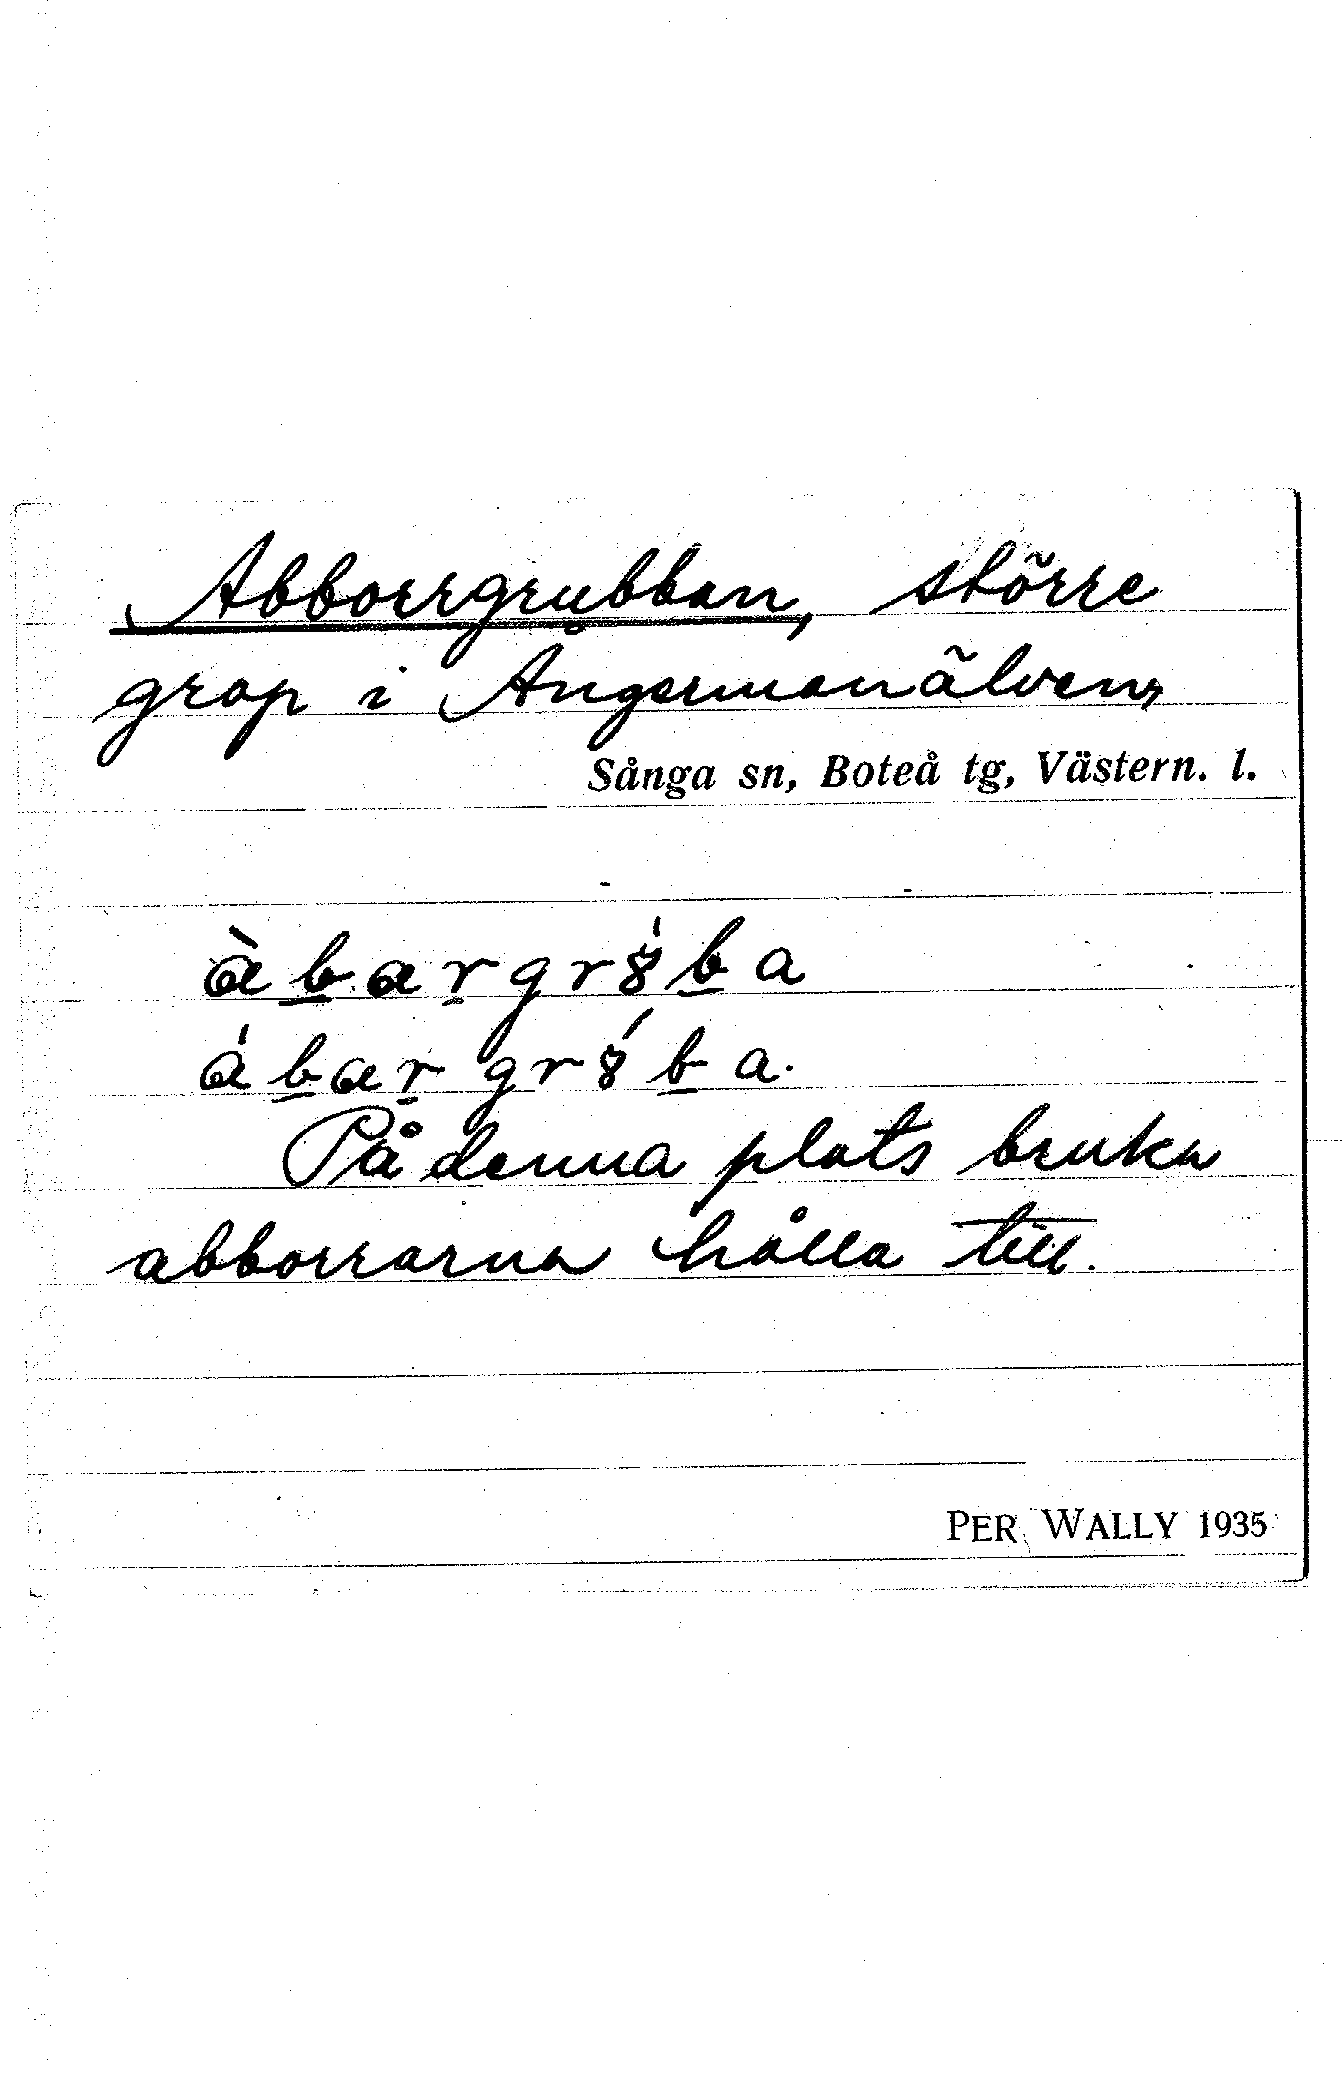 Abborrgrubban, större
grop i Ångermanälven,
Sånga sn, Boteå tg, Västern. l.
àb̲ar̲gr8́b̲a
áb̲ar̲ gr8́b̲a.
På denna plats bruka
abborrarna hålla till.
PER WALLY 1935